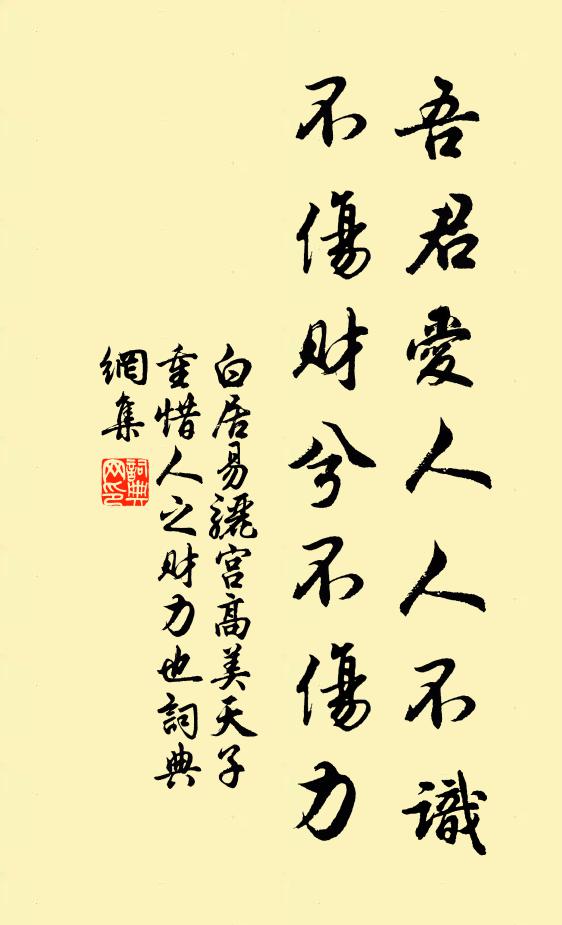 吾君愛人人不識
不傷財兮不傷力
白居易驪宮高美天子
重惜人之財力也詞典
網集
詞典
网印